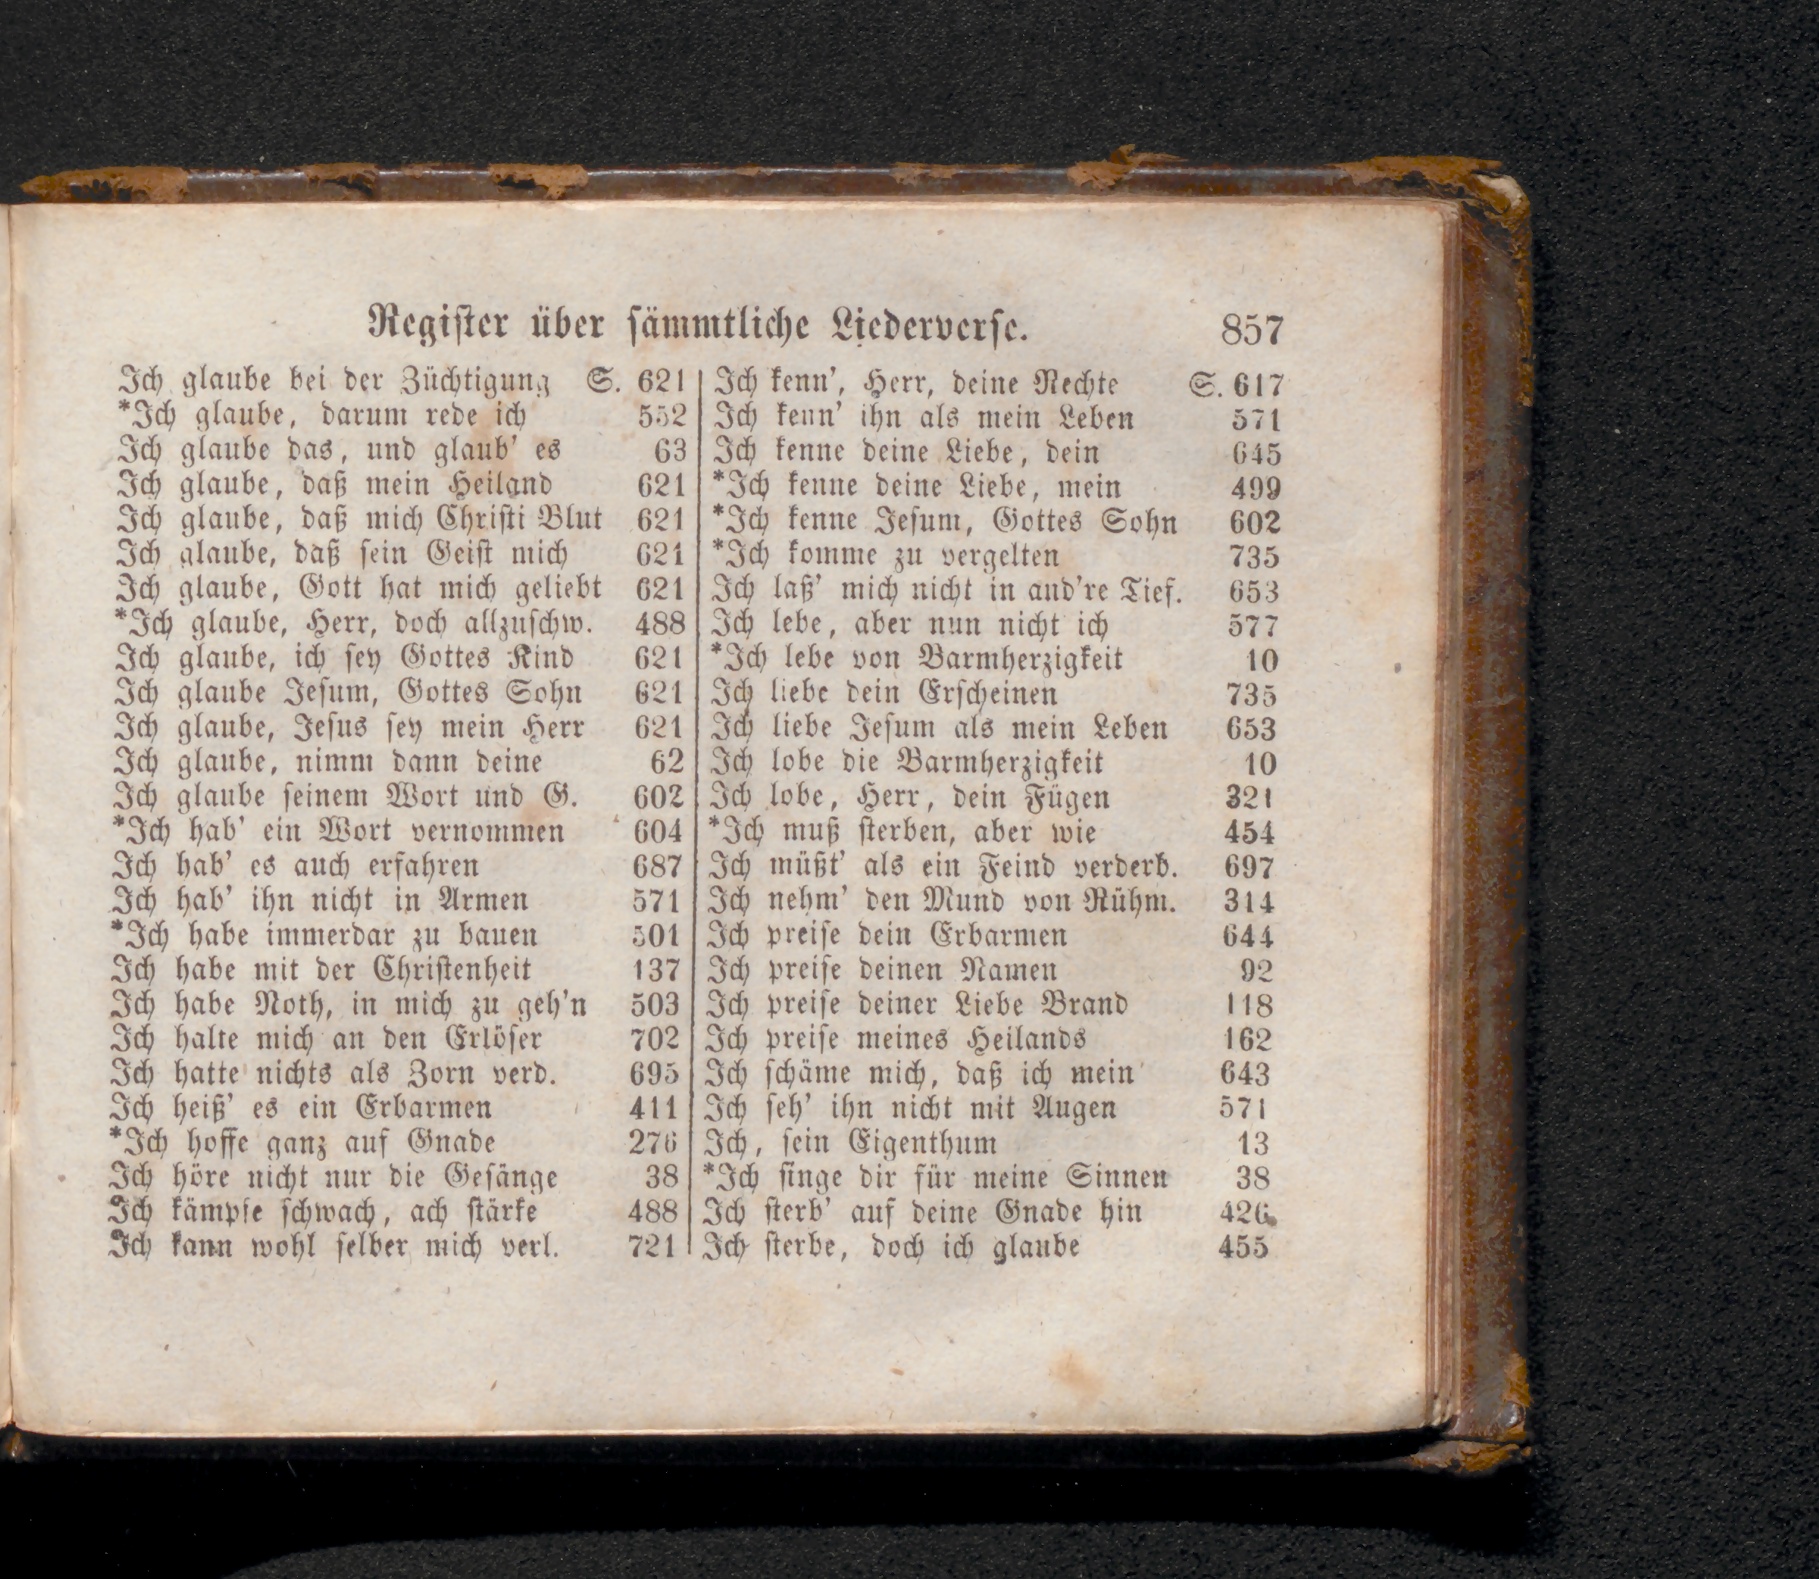 Register über sämmtliche Liederverse. 857
Ich glaube bei der Züchtigung S. 621
*Ich glaube, darum rede ich 552
Ich glaube das, und glaub' es 63
Ich glaube, daß mein Heiland 621
Ich glaube, daß mich Christi Blut 621
Ich glaube, daß sein Geist mich 621
Ich glaube, Gott hat mich geliebt 621
*Ich glaube, Herr, doch allzuschw. 488
Ich glaube, ich sey Gottes Kind 621
Ich glaube Jesum, Gottes Sohn 621
Ich glaube, Jesus sey mein Herr 621
Ich glaube, nimm dann deine 62
Ich glaube seinem Wort und G. 602
*Ich hab' ein Wort vernommen 604
Ich hab' es auch erfahren 687
Ich hab' ihn nicht in Armen 571
*Ich habe immerdar zu bauen 501
Ich habe mit der Christenheit 137
Ich habe Noth, in mich zu geh'n 503
Ich halte mich an den Erlöser 702
Ich hatte nichts als Zorn verd. 695
Ich heiß' es ein Erbarmen 411
*Ich hoffe ganz auf Gnade 276
Ich höre nicht nur die Gesänge 38
Ich kämpfe schwach, ach stärke 488
Ich kann wohl selber mich verl. 721
Ich kenn', Herr, deine Rechte S. 617
Ich kenn' ihn als mein Leben 571
Ich kenne deine Liebe, dein 645
*Ich kenne deine Liebe, mein 499
*Ich kenne Jesum, Gottes Sohn 602
*Ich komme zu vergelten 735
Ich laß' mich nicht in and're Tief. 653
Ich lebe, aber nun nicht ich 577
*Ich lebe von Barmherzigkeit 10
Ich liebe dein Erscheinen 735
Ich liebe Jesum als mein Leben 653
Ich lobe die Barmherzigkeit 10
Ich lobe, Herr, dein Fügen 321
*Ich muß sterben, aber wie 454
Ich müßt' als ein Feind verderb. 697
Ich nehm' den Mund von Rühm. 314
Ich preise dein Erbarmen 644
Ich preise deinen Namen 92
Ich preise deiner Liebe Brand 118
Ich preise meines Heilands 162
Ich schäme mich, daß ich mein 643
Ich seh' ihn nicht mit Augen 571
Ich, sein Eigenthum 13
*Ich singe dir für meine Sinnen 38
Ich sterb' auf deine Gnade hin 426
Ich sterbe, doch ich glaube 455